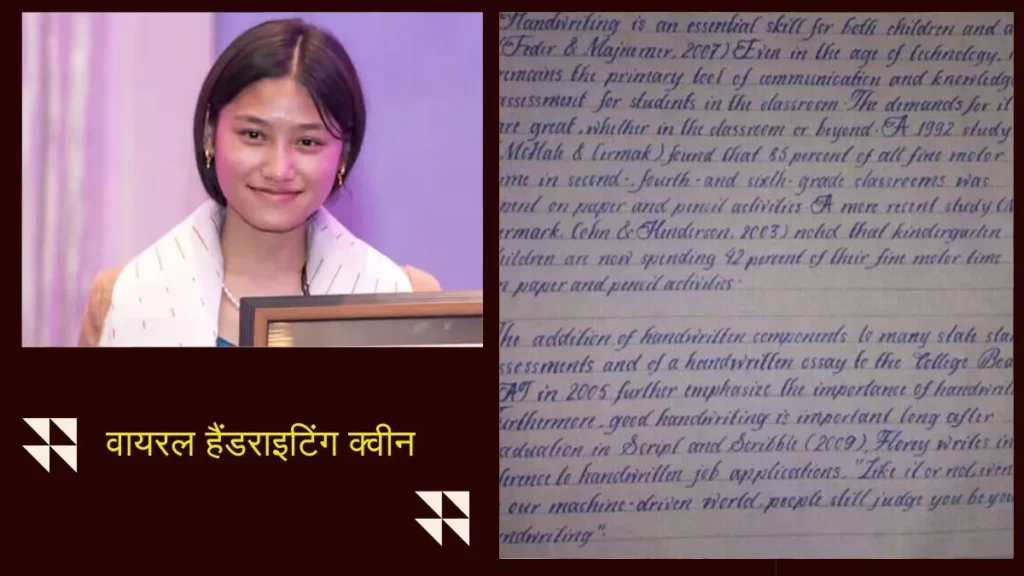 वायरल हैंडराइटिंग क्वीन
"Handwriting is an essential skill for both children and a
(Feder & Majnemer, 2007) Even in the age of technology,
remains the primary tool of communication and knowledg
assessment for students in the classroom. The demands for it
are great, whether in the classroom or beyond. A 1992 study
(McHale & Cermak) found that 85 percent of all fine motor
ime in second-, fourth- and sixth- grade classrooms was
pent on paper and pencil activities. A more recent study (M
ermark, Cohn & Henderson, 2003) noted that kindergarten
hildren are now spending 42 percent of their fine motor time
n paper and pencil activities.
The addition of handwritten components to many state sta
ssessments and of a handwritten essay to the College Boa
SAT in 2005 further emphasize the importance of handwrit
urthermore, good handwriting is important long after
aduation in Script and Scribble (2009), Florey writes in
ference to handwritten job applications, "Like it or not, even
our machine-driven world, people still judge you be you
ndwriting".